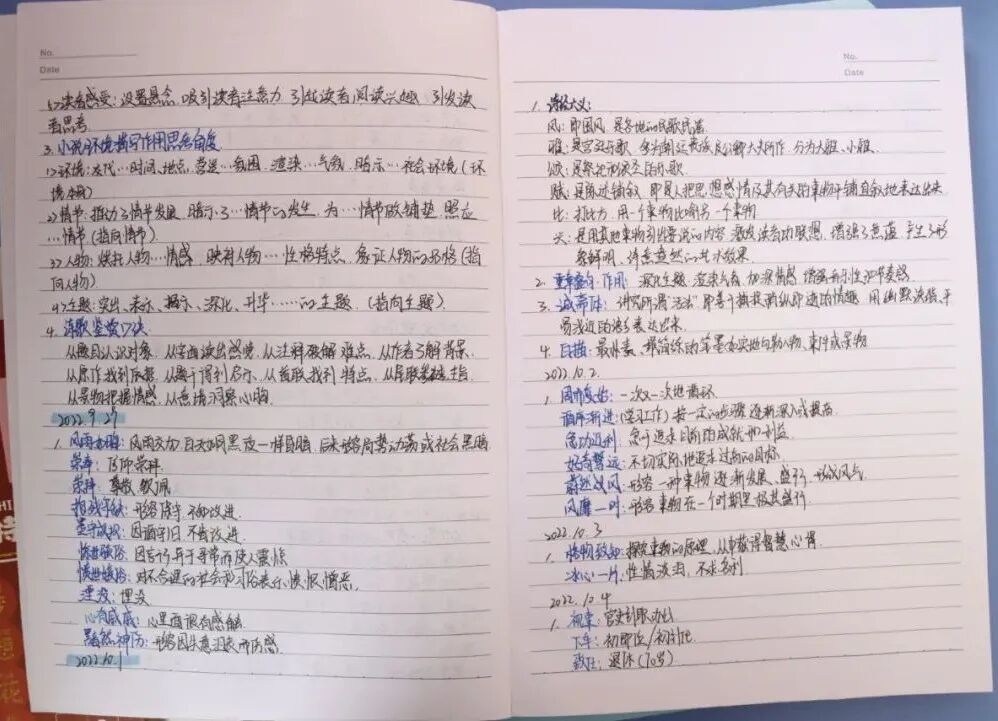 No.
Date
1>读者感受:设置悬念,吸引读者注意力,引起读者阅读兴趣,引发读
者思考.
3.小说环境描写作用思考角度
1>环境:交代…时间、地点,营造…氛围,渲染…气氛,暗示…社会环境(环
境本身)
2>情节:推动了情节发展,暗示了…情节的发生,为…情节做铺垫,照应
…情节(指向情节)
3>人物:烘托人物…情感,映衬人物…性格特点,象征人物的品格(指
向人物)
4>主题:突出、表示、揭示、深化、升华……的主题.(指向主题)
4.诗歌鉴赏口诀
从题目认识对象,从字面读出感觉,从注释破解难点,从作者了解背景.
从原作找到依据,从题干得到启示,从首联找到特点,从尾联主旨
从景物把握情感,从意境洞察心胸.
2022.9.29
1.风雨如晦:风雨交加,白天如同黑夜一样昏暗,后来比喻局势动荡或社会黑暗.
荣幸:
:尊敬,敬佩.
:形容保守,不知改进.
墨守成规:因循守旧,不肯改进.
惊世骇俗:因言行异于寻常而使人震惊
愤世嫉俗:对不合理的社会和习俗表示愤恨憎恶.
湮没:埋没
心有戚戚:心里面很有感触
黯然神伤:形容因失意沮丧而伤感.
2022.10.1
No.
Date
1.诗经六义:
风:即国风,是各地的民歌民谣.
雅:是宫廷乐歌,多为朝廷贵族及公卿大夫所作,分为大雅、小雅.
颂:是祭祀和颂圣的乐歌
赋:是陈述铺叙,即是人把思想感情及其有关的事物平铺直叙地表达出来
比:打比方,用一个事物比喻另一个事物
兴:是用其他事物引出要说的内容,激发读者的联想,增强了意蕴,产生了形
象鲜明,诗意盎然的艺术效果
2.重章叠句作用:深化主题,渲染气氛,加深情感,增强音乐性和节奏感
3.诚斋体:讲究所谓"活法"即善于捕捉稍纵即逝的情趣,用幽默诙谐,平
易浅近的语言表达出来.
4.白描:最朴素、最简练的笔墨如实地勾勒人物、事件或景物
2022.10.2.
1.周而复始:一次又一次地循环
循序渐进:(学习工作)按一定的步骤逐渐深入或提高.
急功近利:急于追求目前的成效和利益.
好高骛远:不切实际地追求过高的目标.
蔚然成风:形容一种事物逐渐发展、盛行,形成风气.
风靡一时:形容事物在一个时期里极其盛行
2022.10.3
1.格物致知:探究事物的原理,从中获得智慧心得.
冰心一片:性情淡泊,不求名利
2022.10.4
1.视事:官吏到职办公
下车:初即位/初到任
致仕:退休(70岁)